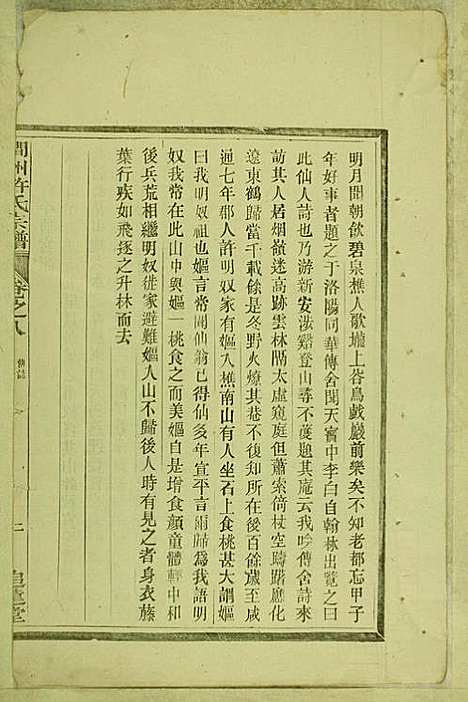 明月間朝飲碧泉樵人歌壠上谷鳥戲巖前樂矣不知老都忘甲子
年好事者題之于洛陽同華傳舍間天寶中李白自翰林出覽之曰
此仙人詩也乃游新安涉谿登山尋不獲題其庵云我吟傳舍詩來
訪其人居烟嶺迷高跡雲林隔太虛窺庭但蕭索倚杖空躊躇應化
遼東鶴歸當千載餘是冬野火燎其巷不復知所在後百餘歲至咸
通七年郡人許明奴家有嫗入樵南山有人坐石上食桃甚大謂嫗
曰我明奴祖也嫗言常聞仙翁已得仙多年宣平言爾歸為我語明
奴我常在此山中與嫗一桃食之而美嫗自是增食顏童體輕中和
後兵荒相繼明奴徙家避難嫗入山不歸後人時有見之者身衣蔴
葉行疾如飛逐之升林而去
州許氏宗譜
卷之八